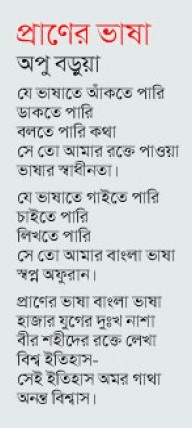 প্রাণের ভাষা
অপু বড়ুয়া
যে ভাষাতে আঁকতে পারি
ডাকতে পারি
বলতে পারি কথা
সে তো আমার রক্তে পাওয়া
ভাষার স্বাধীনতা।
যে ভাষাতে গাইতে পারি
চাইতে পারি
লিখতে পারি
সে তো আমার বাংলা ভাষা
স্বপ্ন অফুরান।
প্রাণের ভাষা বাংলা ভাষা
হাজার যুগের দুঃখ নাশা
বীর শহীদের রক্তে লেখা
বিশ্ব ইতিহাস-
সেই ইতিহাস অমর গাথা
অনন্ত বিশ্বাস।